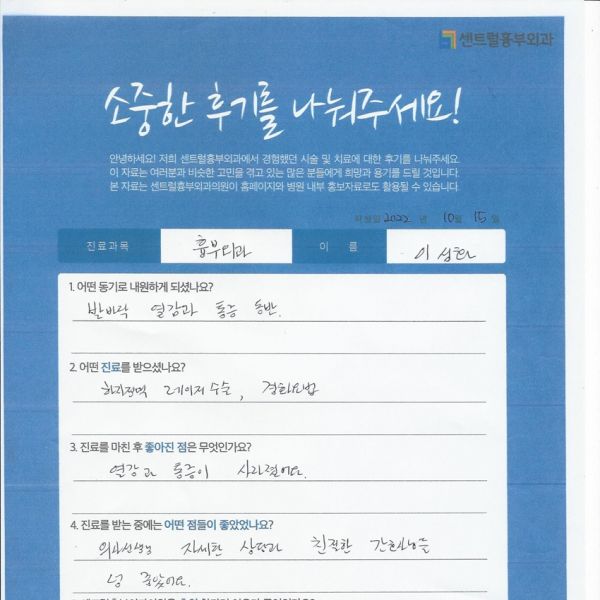 센트럴흉부외과
소중한 후기를 나눠주세요!
안녕하세요! 저희 센트럴흉부외과에서 경험했던 시술 및 치료에 대한 후기를 나눠주세요.
이 자료는 여러분과 비슷한 고민을 겪고 있는 많은 분들에게 희망과 용기를 드릴 것입니다.
본 자료는 센트럴흉부외과의원이 홈페이지와 병원 내부 홍보자료로도 활용될 수 있습니다.
작성일 2022 년 10월 15일
진료과목 흉부외과 이 름 이
1. 어떤 동기로 내원하게 되셨나요?
발바닥 열감과 통증 동반.
2. 어떤 진료를 받으셨나요?
하지정맥 레이저수술, 경화요법
3. 진료를 마친 후 좋아진 점은 무엇인가요?
열감과 통증이 사라졌어요.
4. 진료를 받는 중에는 어떤 점들이 좋았었나요?
의사선생님 자세한 상담과 친절한 간호사님들
넘 좋았어요.